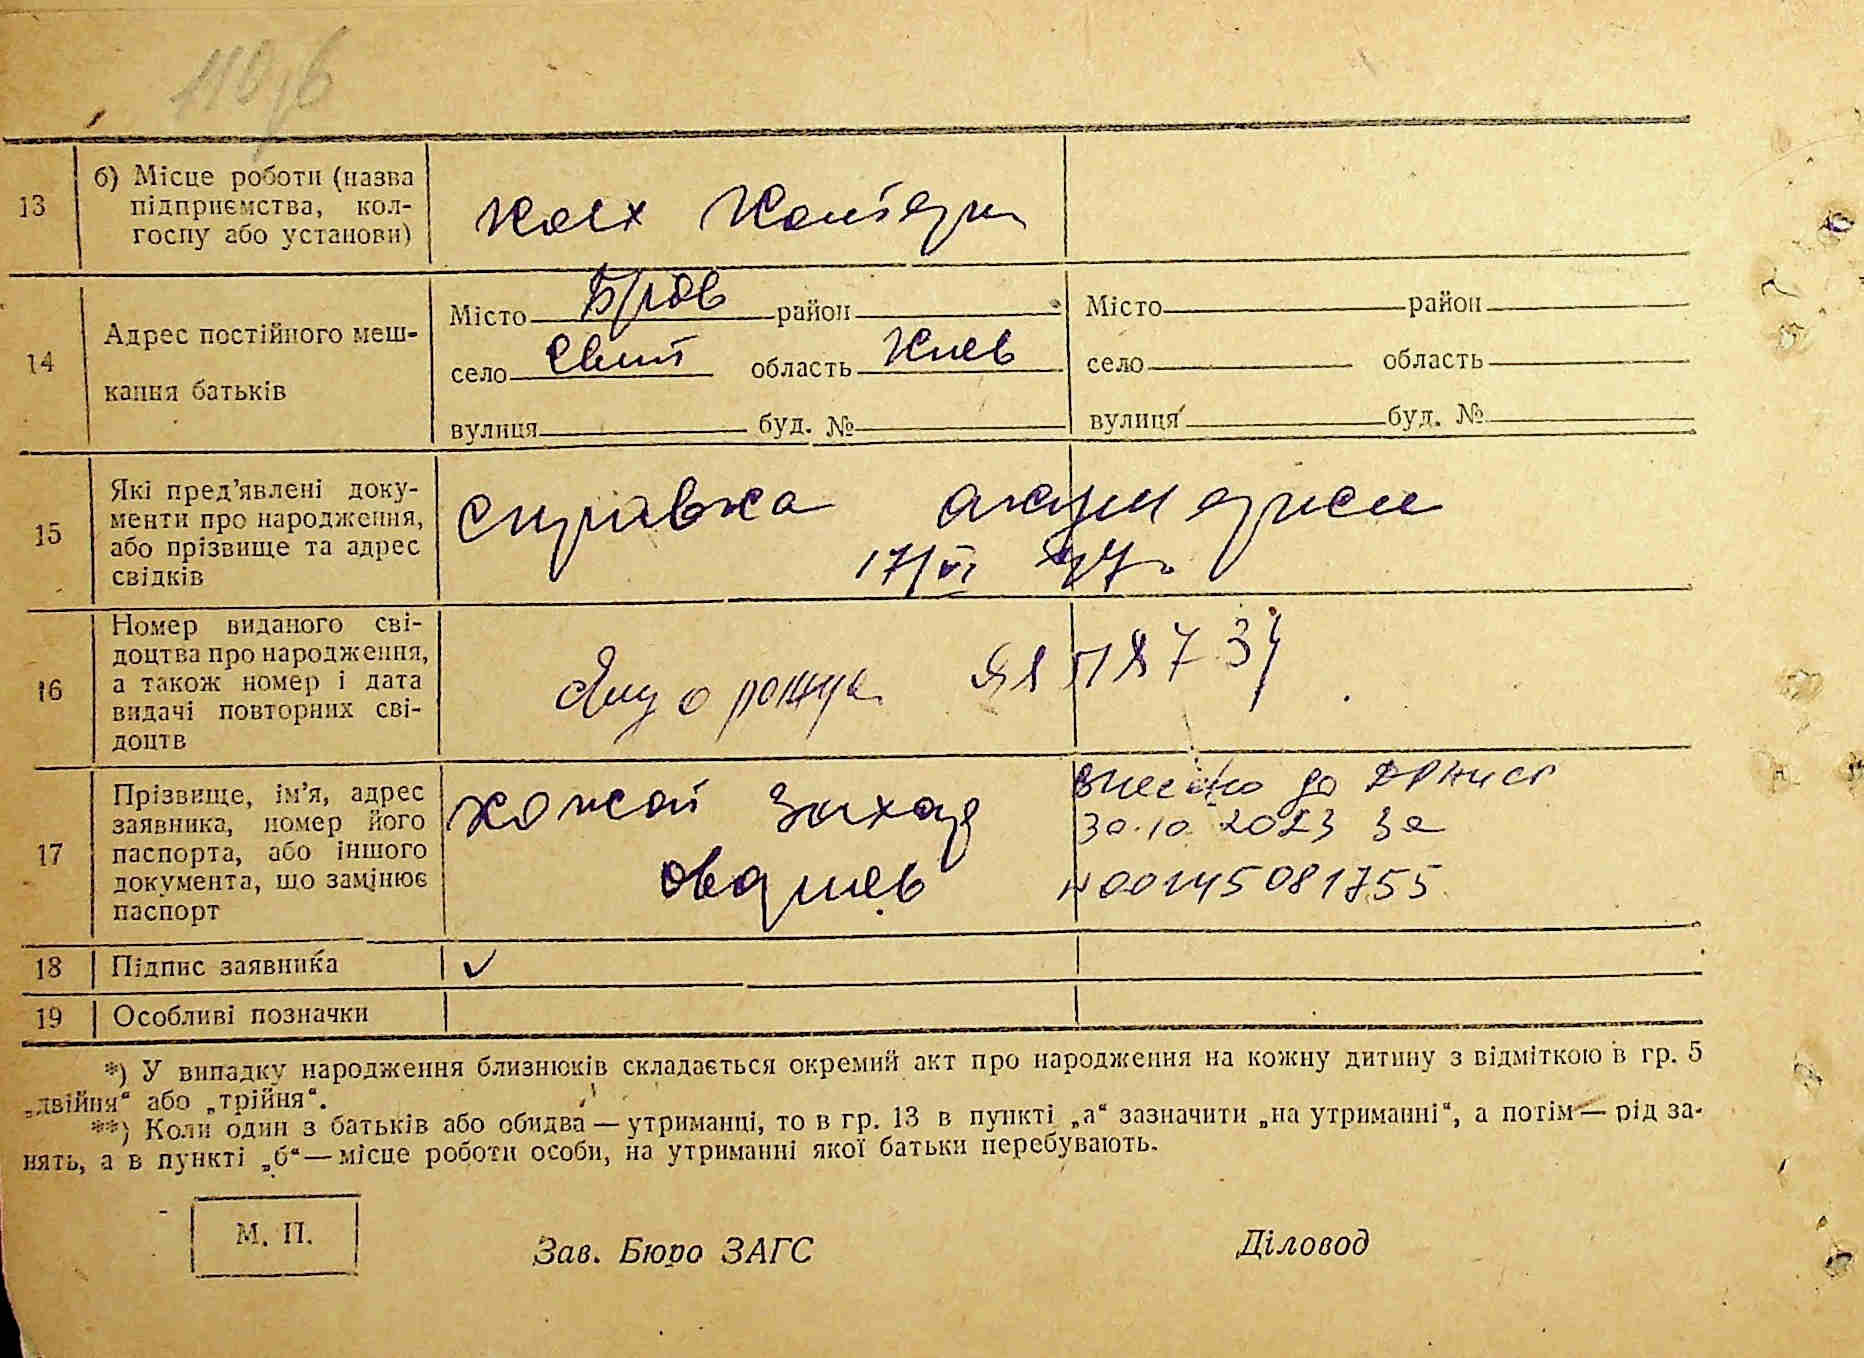 110зв
13
б) Місце роботи (назва
підприємства, кол-
госпу або установи)
Колх
14
Адрес постійного меш-
кання батьків
Місто Бров район
село Світ область Киев
вулиця буд. №
Місто район
село область
вулиця буд. №
15
Які пред'явлені доку-
менти про народження,
або прізвище та адрес
свідків
справка акушерки
17/VI 47.
16
Номер виданого сві-
доцтва про народження,
а також номер і дата
видачі повторних сві-
доцтв
17
Прізвище, ім'я, адрес
заявника, номер його
паспорта, або іншого
документа, що замінює
паспорт
Захар
внесено до ДРАЦСГ
30.10.2023 за
N00145081755
18
Підпис заявника
✓
19
Особливі позначки
*) У випадку народження близнюків складається окремий акт про народження на кожну дитину з відміткою в гр. 5
„двійня“ або „трійня“.
**) Коли один з батьків або обидва — утриманці, то в гр. 13 в пункті „а“ зазначити „на утриманні“, а потім — рід за-
нять, а в пункті „б“ — місце роботи особи, на утриманні якої батьки перебувають.
М. П.
Зав. Бюро ЗАГС
Діловод